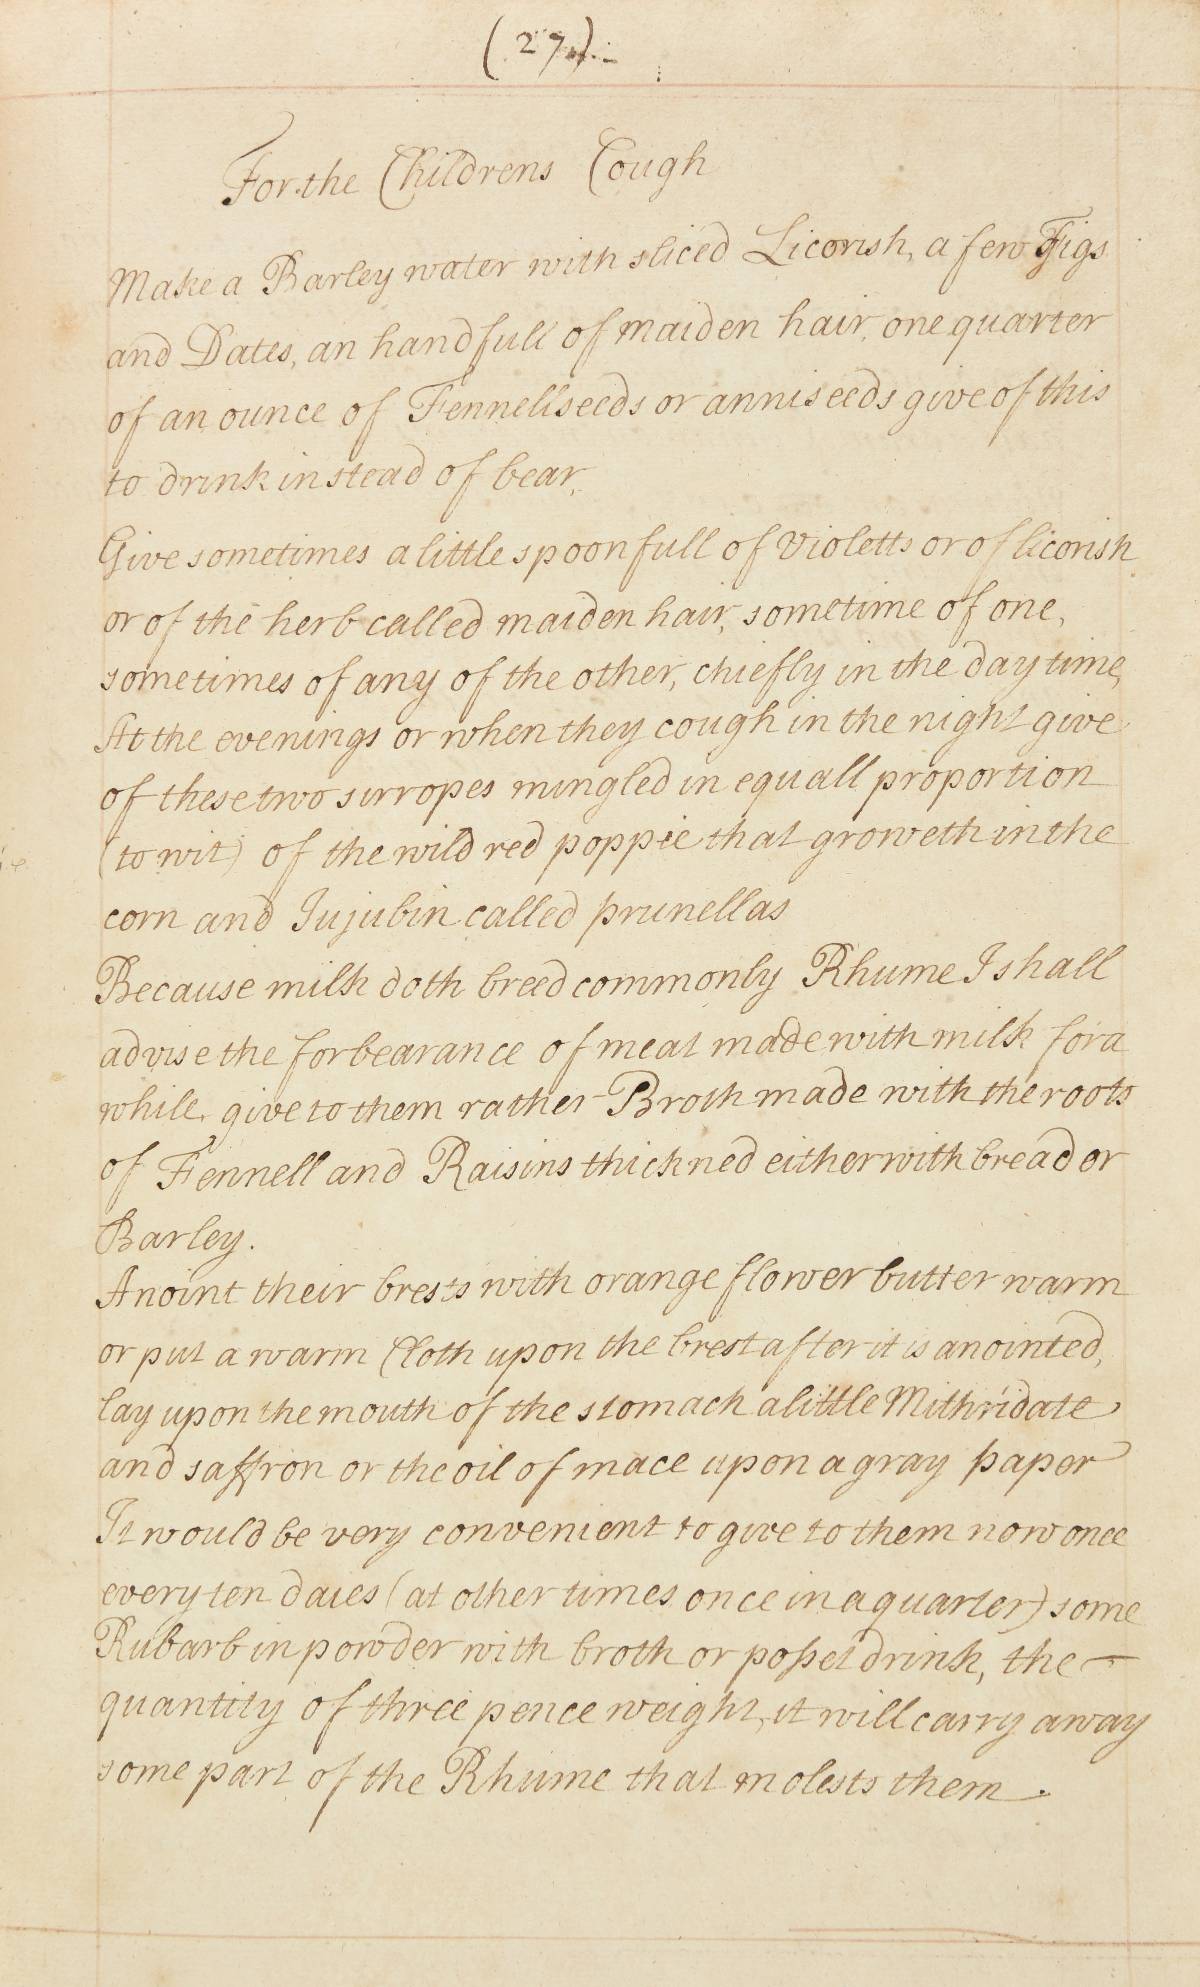 (27).
For the Childrens Cough
Make a Barley water with sliced Licorish, a few Figs
and Dates, an handfull of maiden hair, one quarter
of an ounce of Fennellseeds or anniseeds give of this
to drink instead of bear,
Give sometimes a little spoonfull of violetts or of licorish
or of the herb called maiden hair, sometime of one,
sometimes of any of the other, chiefly in the day time,
At the evenings or when they cough in the night give
of these two sirropes mingled in equall proportion
(to wit) of the wild red poppie that groweth in the
corn and Jujubin called prunellas
Because milk doth breed commonly Rhume I shall
advise the forbearance of meat made with milk for a
while, give to them rather Broth made with the roots
of Fennell and Raisins thickned either with bread or
Barley.
Anoint their brests with orange flower butter warm
or put a warm Cloth upon the brest after it is anointed,
lay upon the mouth of the stomach a little Mithridate
and saffron or the oil of mace upon a gray paper
It would be very convenient to give to them now once
every ten daies (at other times once in a quarter) some
Rubarb in powder with broth or posset drink, the
quantity of three pence weight, it will carry away
some part of the Rhume that molests them.